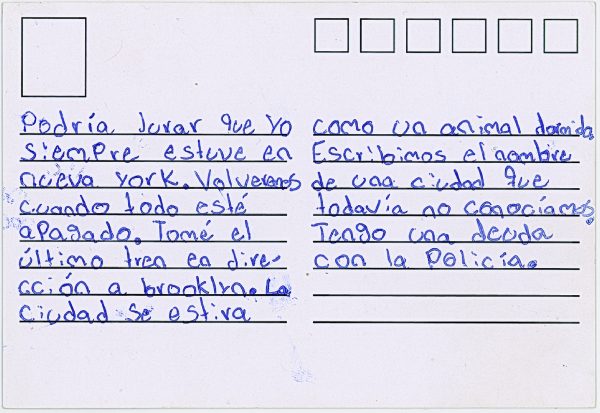 Podría jurar que yo
siempre estuve en
nueva york. Volveremos
cuando todo esté
apagado. Tomé el
último tren en dire-
cción a brooklyn. La
ciudad se estira
como un animal dormido.
Escribimos el nombre
de una ciudad que
todavía no conocíamos.
Tengo una deuda
con la Policía.